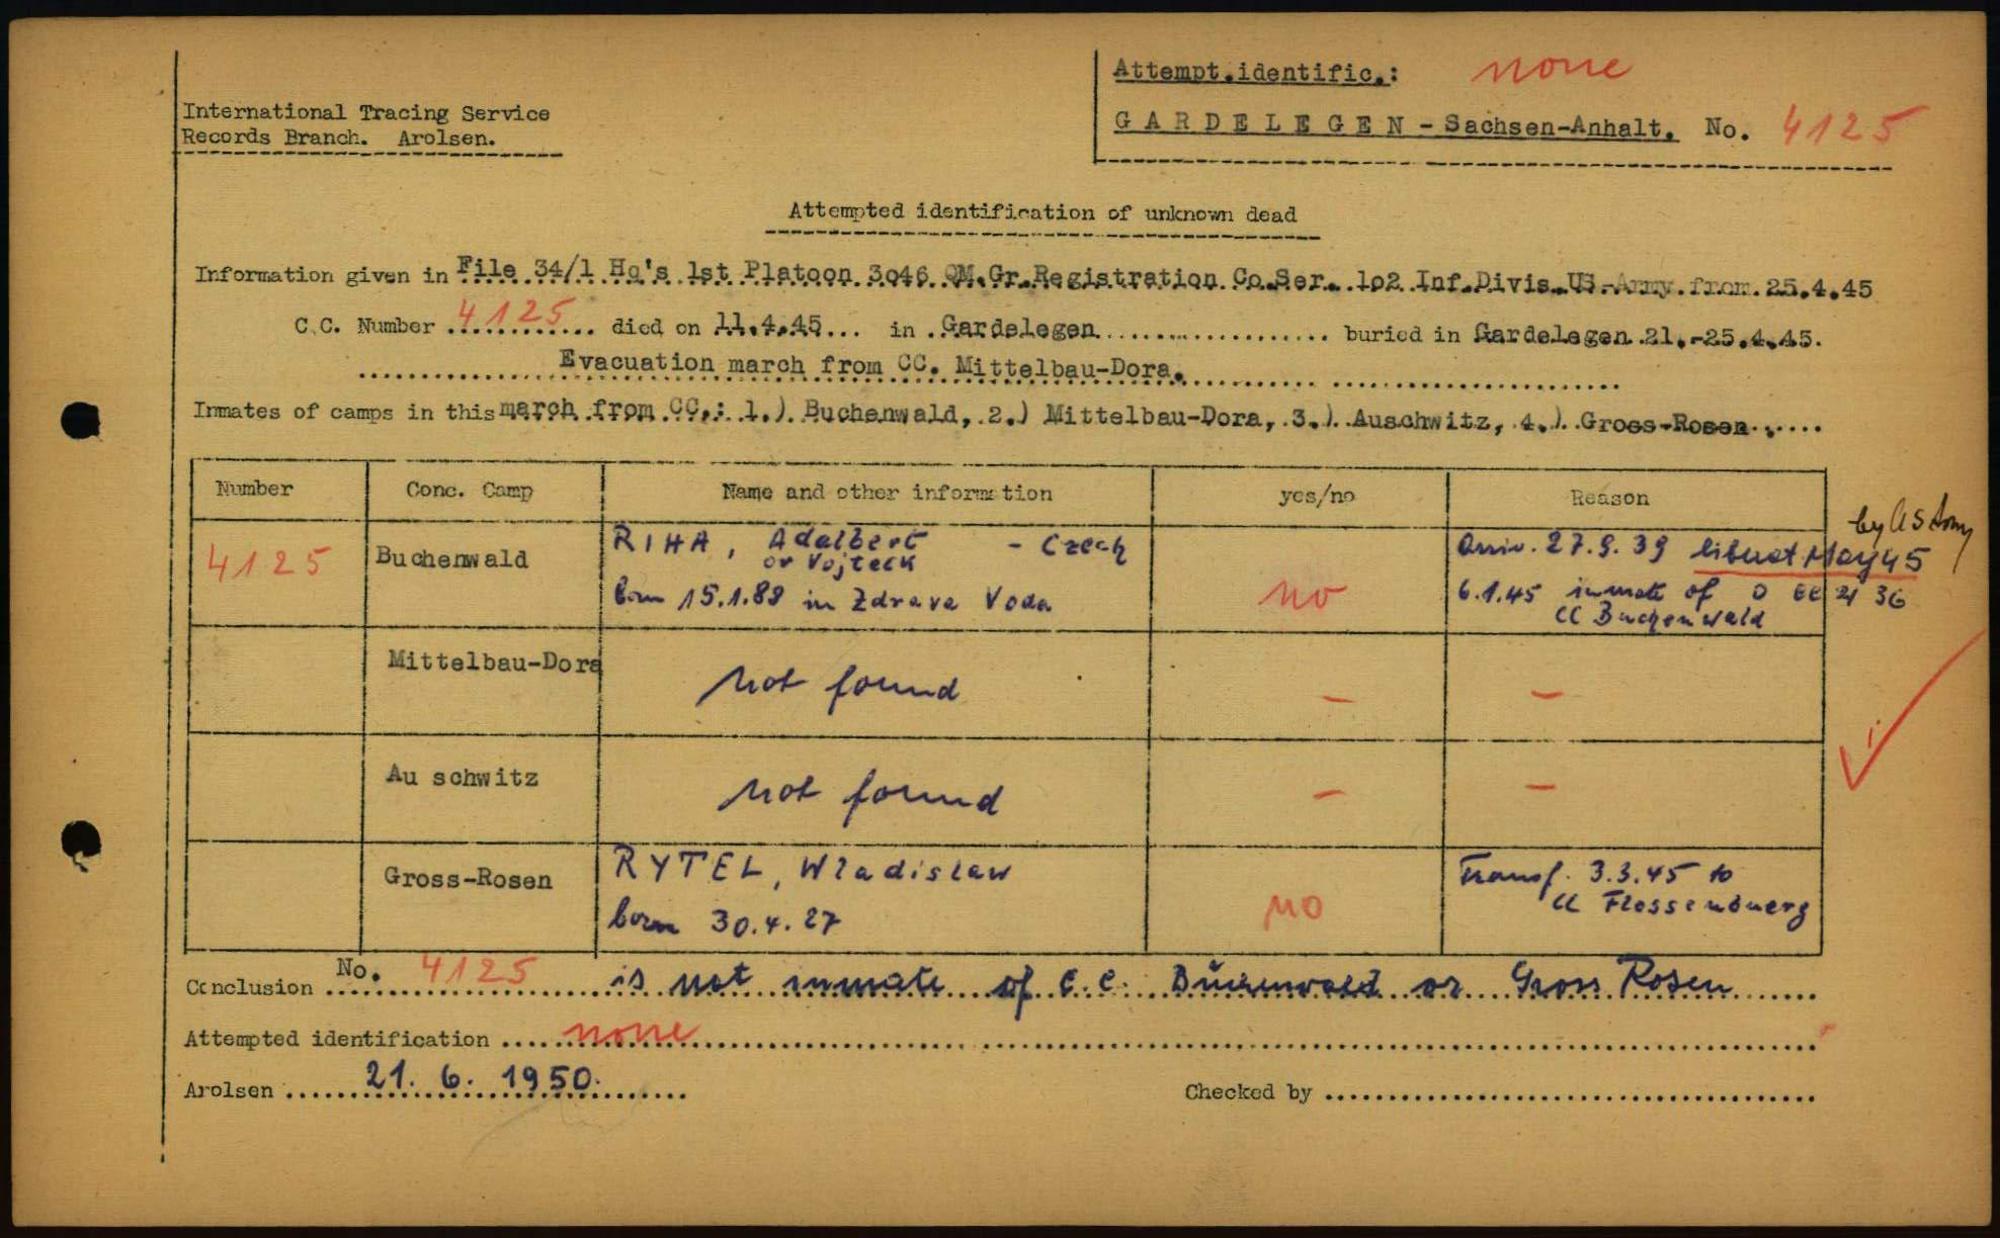 Attempt.identific.: none
International Tracing Service
Records Branch. Arolsen.
GARDELEGEN - Sachsen-Anhalt. No. 4125
Attempted identification of unknown dead
Information given in File 34/1 Hq's 1st Platoon 3o46 QM.Gr.Registration Co.Ser. 1o2 Inf.Divis.US-Army from 25.4.45
C.C. Number 4125 died on 11.4.45 in Gardelegen buried in Gardelegen 21.-25.4.45.
Evacuation march from CC. Mittelbau-Dora.
Inmates of camps in this march from CC.: 1.) Buchenwald, 2.) Mittelbau-Dora, 3.) Auschwitz, 4.) Gross-Rosen
Number Conc. Camp Name and other information yes/no Reason
by US Army
4125 Buchenwald RIHA, Adalbert - Czech Arriv. 27.9.39 liberat May 45
or Vojteck
born 15.1.89 in Zdrava Voda no 6.1.45 inmate of D EE 21 36
CC Buchenwald
Mittelbau-Dora not found - -
Au schwitz not found - -
Gross-Rosen RYTEL, Wladislaw Transf. 3.3.45 to
born 30.4.27 no CC Flossenbuerg
Conclusion No. 4125 is not inmate of C.C. Buchenwald or Gross Rosen
Attempted identification none
Arolsen 21. 6. 1950. Checked by